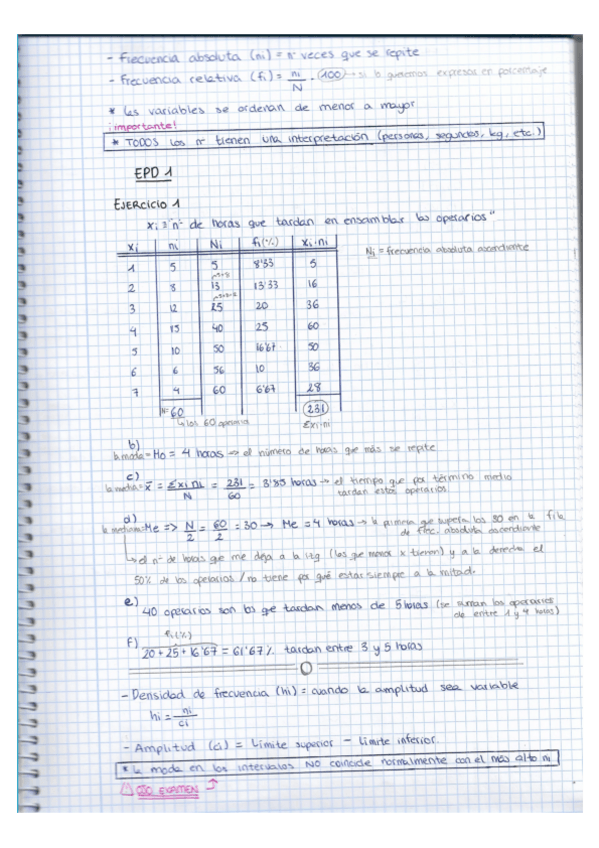 - Frecuencia absoluta (ni) = nº veces que se repite
- Frecuencia relativa (fi) = ni/N · (100) → si lo queremos expresar en porcentaje
* Las variables se ordenan de menor a mayor
¡importante!
* TODOS los nº tienen una interpretación (personas, segundos, kg, etc.)
EPD 1
EJERCICIO 1
xi = "nº de horas que tardan en ensamblar los operarios"
xi ni Ni fi(%) xi·ni
Ni = frecuencia absoluta ascendiente
1 5 5 8'33 5
2 8 13 13'33 16
3 12 25 20 36
4 15 40 25 60
5 10 50 16'67 50
6 6 56 10 36
7 4 60 6'67 28
N=60 231
↳ los 60 operarios Σxi·ni
b)
la moda = Mo = 4 horas → el número de horas que más se repite
c)
la media = x̄ = Σxi ni / N = 231/60 = 3'85 horas → el tiempo que por término medio
tardan estos operarios.
d)
la mediana = Me => N/2 = 60/2 = 30 → Me = 4 horas → la primera que supera los 30 en la fila
de frec. absoluta ascendiente
↳ el nº de horas que me deja a la izq (los que menor x tienen) y a la derecha el
50% de los operarios / no tiene por qué estar siempre a la mitad.
e)
40 operarios son los que tardan menos de 5 horas (se suman los operarios
de entre 1 y 4 horas)
fi(%)
f) 20 + 25 + 16'67 = 61'67% tardan entre 3 y 5 horas
- Densidad de frecuencia (hi) = cuando la amplitud sea variable
hi = ni/ci
- Amplitud (ci) = Límite superior - Límite inferior.
* La moda en los intervalos NO coincide normalmente con el más alto ni
OJO EXAMEN